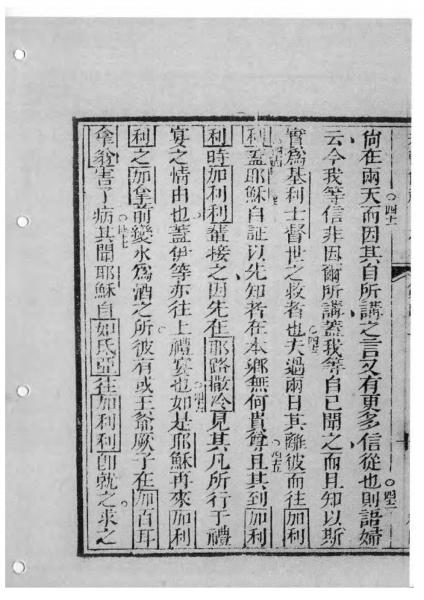 尚在兩天而因其自所講之言又有更多信從也則語婦
云今我等信非因爾所講蓋我等自己聞之而且知以斯
實為基利士督世之救者也夫過兩日其離彼而往加利
利蓋耶穌自証以先知者在本鄉無何貴尊且其到加利
利時加利利輩接之因先在耶路撒冷見其凡所行于禮
宴之情由也蓋伊等亦往上禮宴也如是耶穌再來加利
利之加拿前變水為酒之所彼有或王爺厥子在加百耳
拿翁害了病其聞耶穌自如氐亞往加利利即就之求之